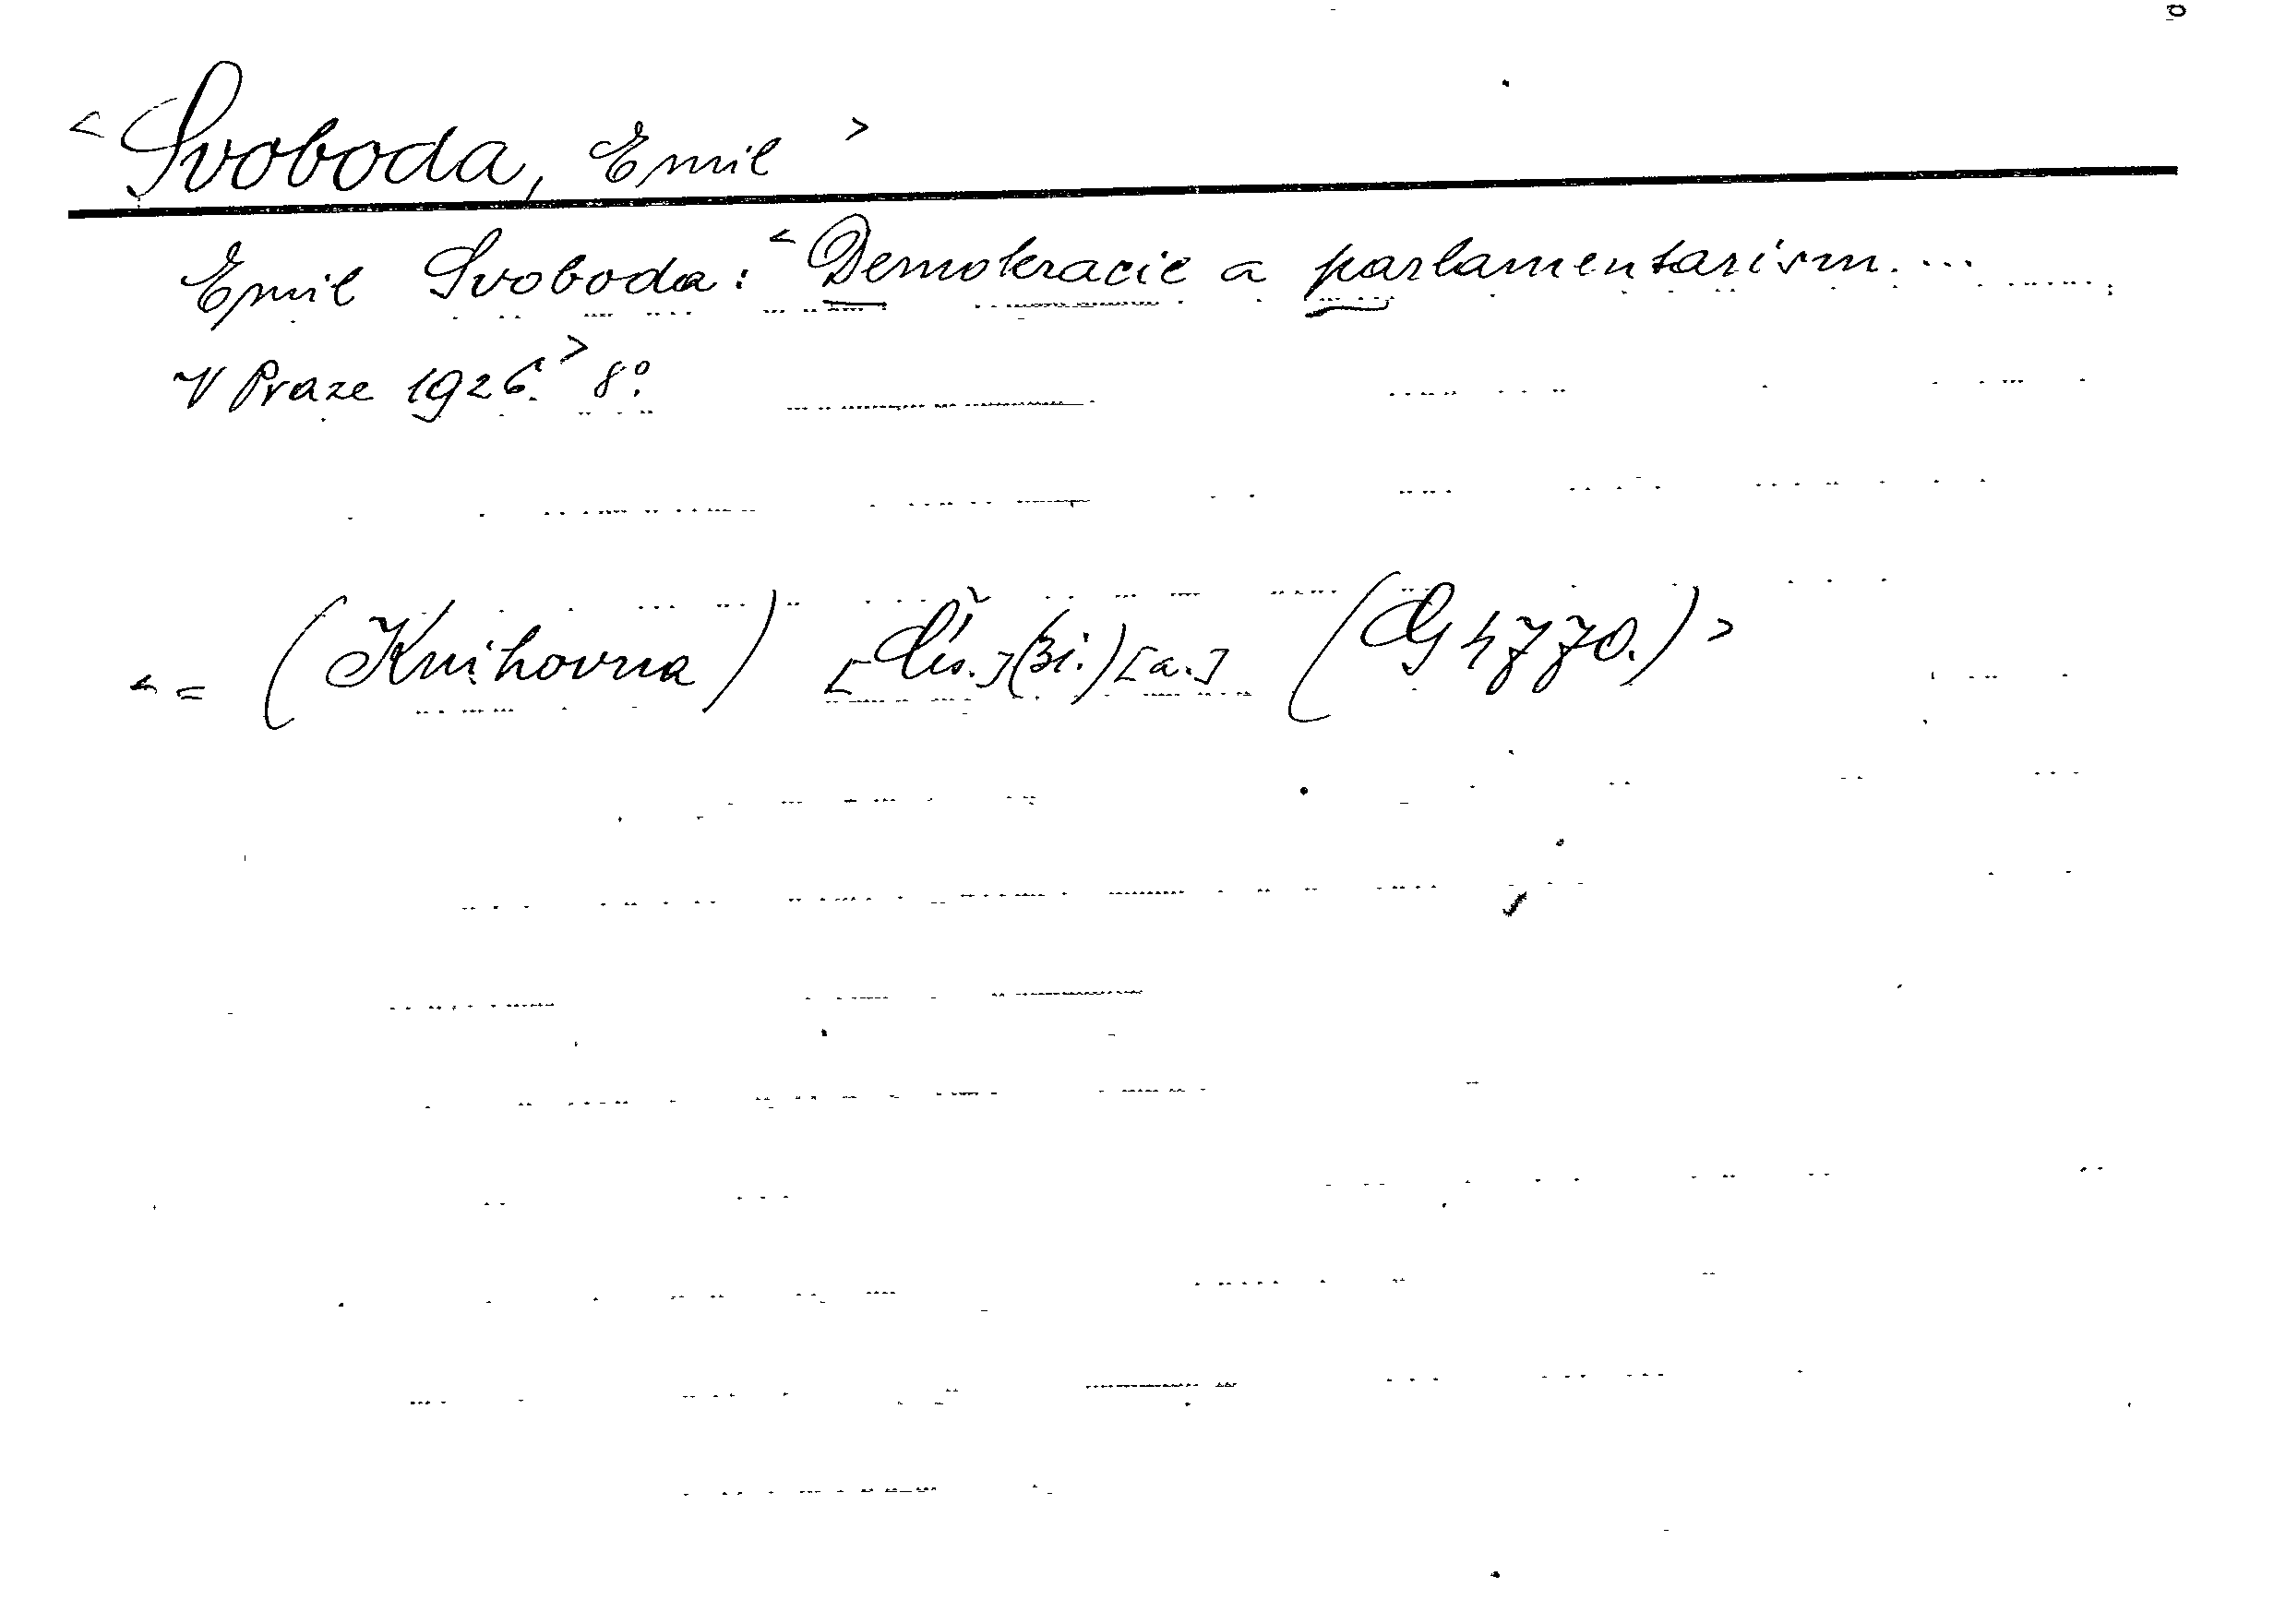 < Svoboda, Emil >
Emil Svoboda: < Demokracie a parlamentarism. ...
V Praze 1926. > 8°.
< = (Knihovna) [Čís.] (3i.) [a.] (G 4770.) >